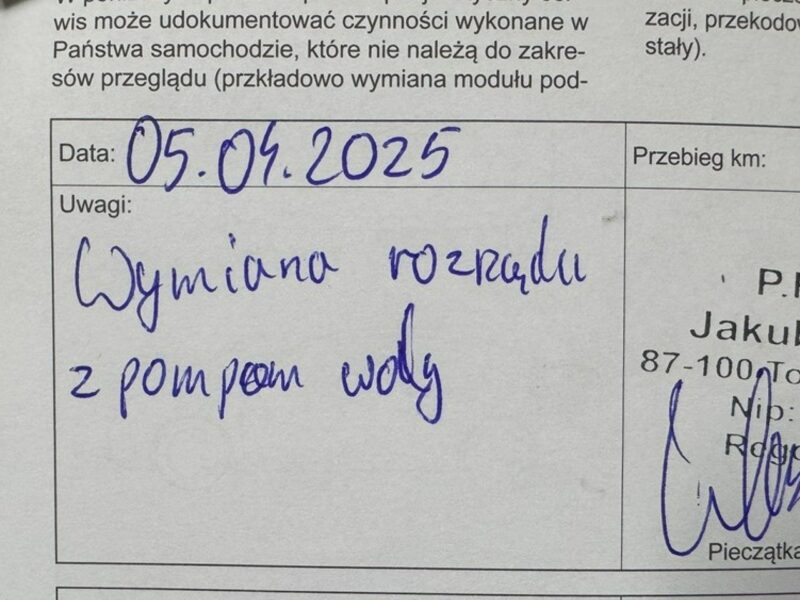 wis może udokumentować czynności wykonane w
Państwa samochodzie, które nie należą do zakre-
sów przeglądu (przkładowo wymiana modułu pod-
zacji, przekodow
stały).
Data: 05.04.2025
Przebieg km:
Uwagi:
Wymiana rozrządu
z pompom wody
P.
Jakub
87-100 To
Nip:
Pieczątka